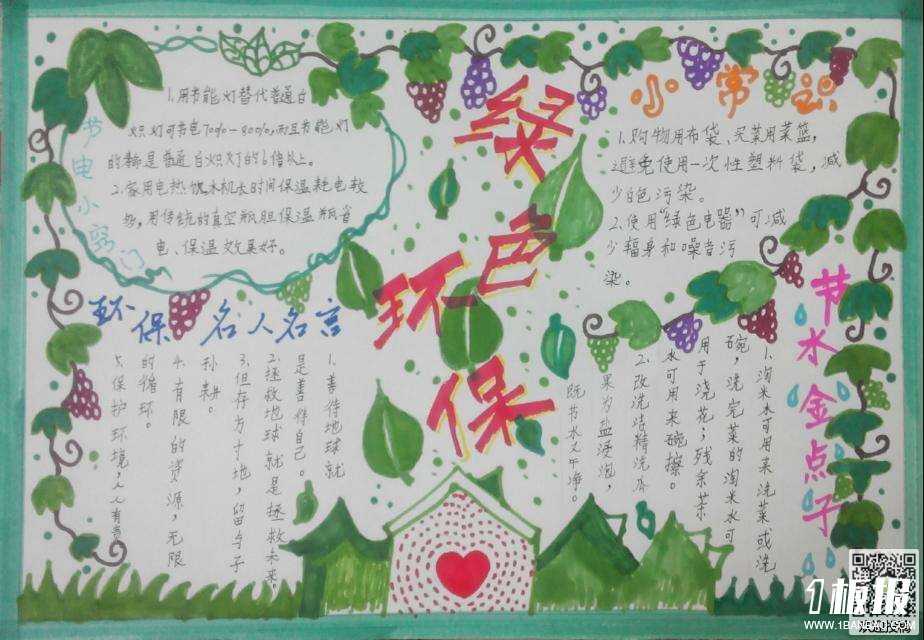 绿色环保
节电小窍门
1.用节能灯替代普通白
炽灯可节电70%-80%,而且节能灯
的寿命是普通白炽灯的6倍以上。
2.家用电热饮水机长时间保温耗电较
多,用传统的真空瓶胆保温瓶省
电、保温效果好。
小常识
1.购物用布袋、买菜用菜篮,
避免使用一次性塑料袋,减
少白色污染。
2.使用“绿色电器”可减
少辐身和噪音污
染。
环保名人名言
1.善待地球就
是善待自己。
2.拯救地球就是拯救未来。
3.但存方寸地,留与子
孙耕。
4.有限的资源,无限
的循环。
5.保护环境人人有责
节水金点子
1.淘米水可用来洗菜或洗
碗,洗完菜的淘米水可
用于浇花;残余茶
水可用来碗擦。
2.改洗洁精洗瓜
果为盐浸泡,
既节水又干净。
1板报
WWW.1BANBAO.COM
欢迎投稿